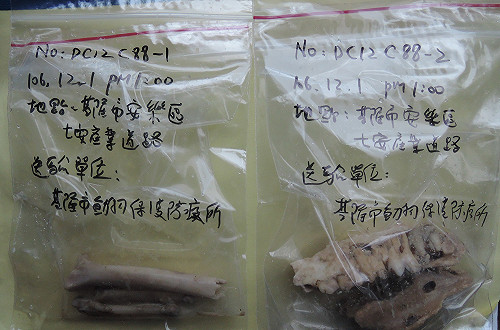 No: DC12C88-1
106.12.1 pm 1:00
地點:基隆市安樂區
七安產業道路
送驗單位:
基隆市動物保護防疫所
No: DC12C88-2
106.12.1 pm 1:00
地點:基隆市安樂區
七安產業道路
送驗單位:
基隆市動物保護防疫所